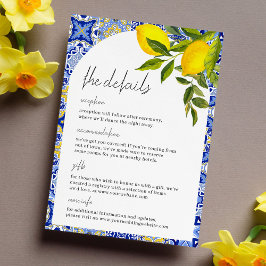 the details
reception
reception will follow after ceremony,
where we'll dance the night away
accommodation
we've got you cared for! if you're coming from
out of town, we've made sure to reserve
some rooms for you at nearby hotels.
gifts
for those who wish to honor us with a gift, we've
created a registry with a selection of items
more info
for additional information and updates,
please visit us on